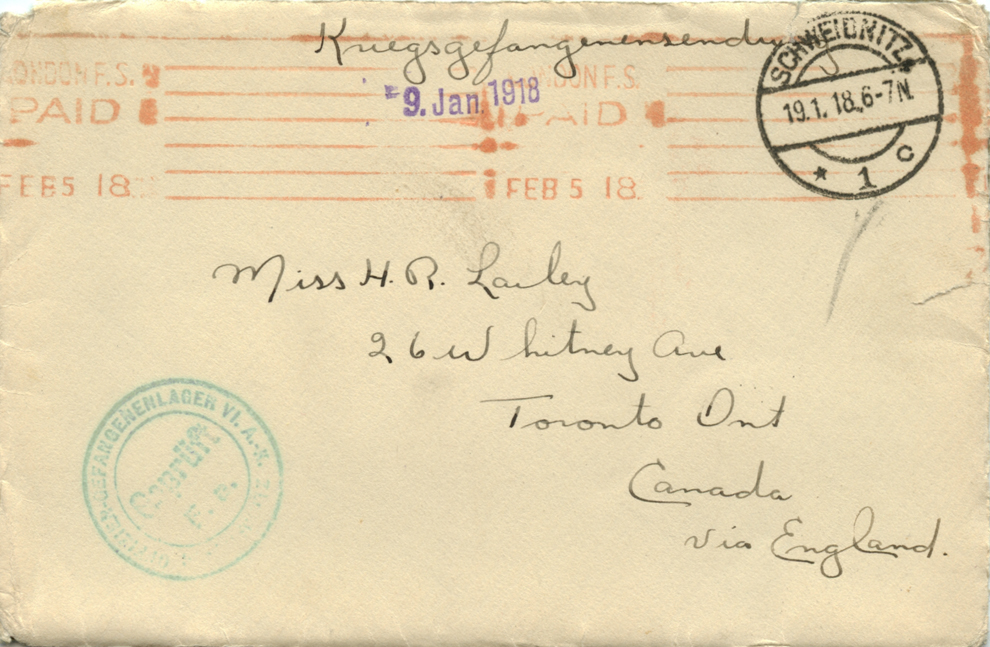 Kriegsgefangenensendung
LONDON F.S.
PAID
FEB 5 18
LONDON F.S.
PAID
FEB 5 18
9. Jan. 1918
SCHWEIDNITZ
19.1.18.6-7N.
* 1 c
Miss H. R. Lailey
26 Whitney Ave
Toronto Ont
Canada
via England.
GEFANGENENLAGER VI. A.-K.
Geprüft
F. a.